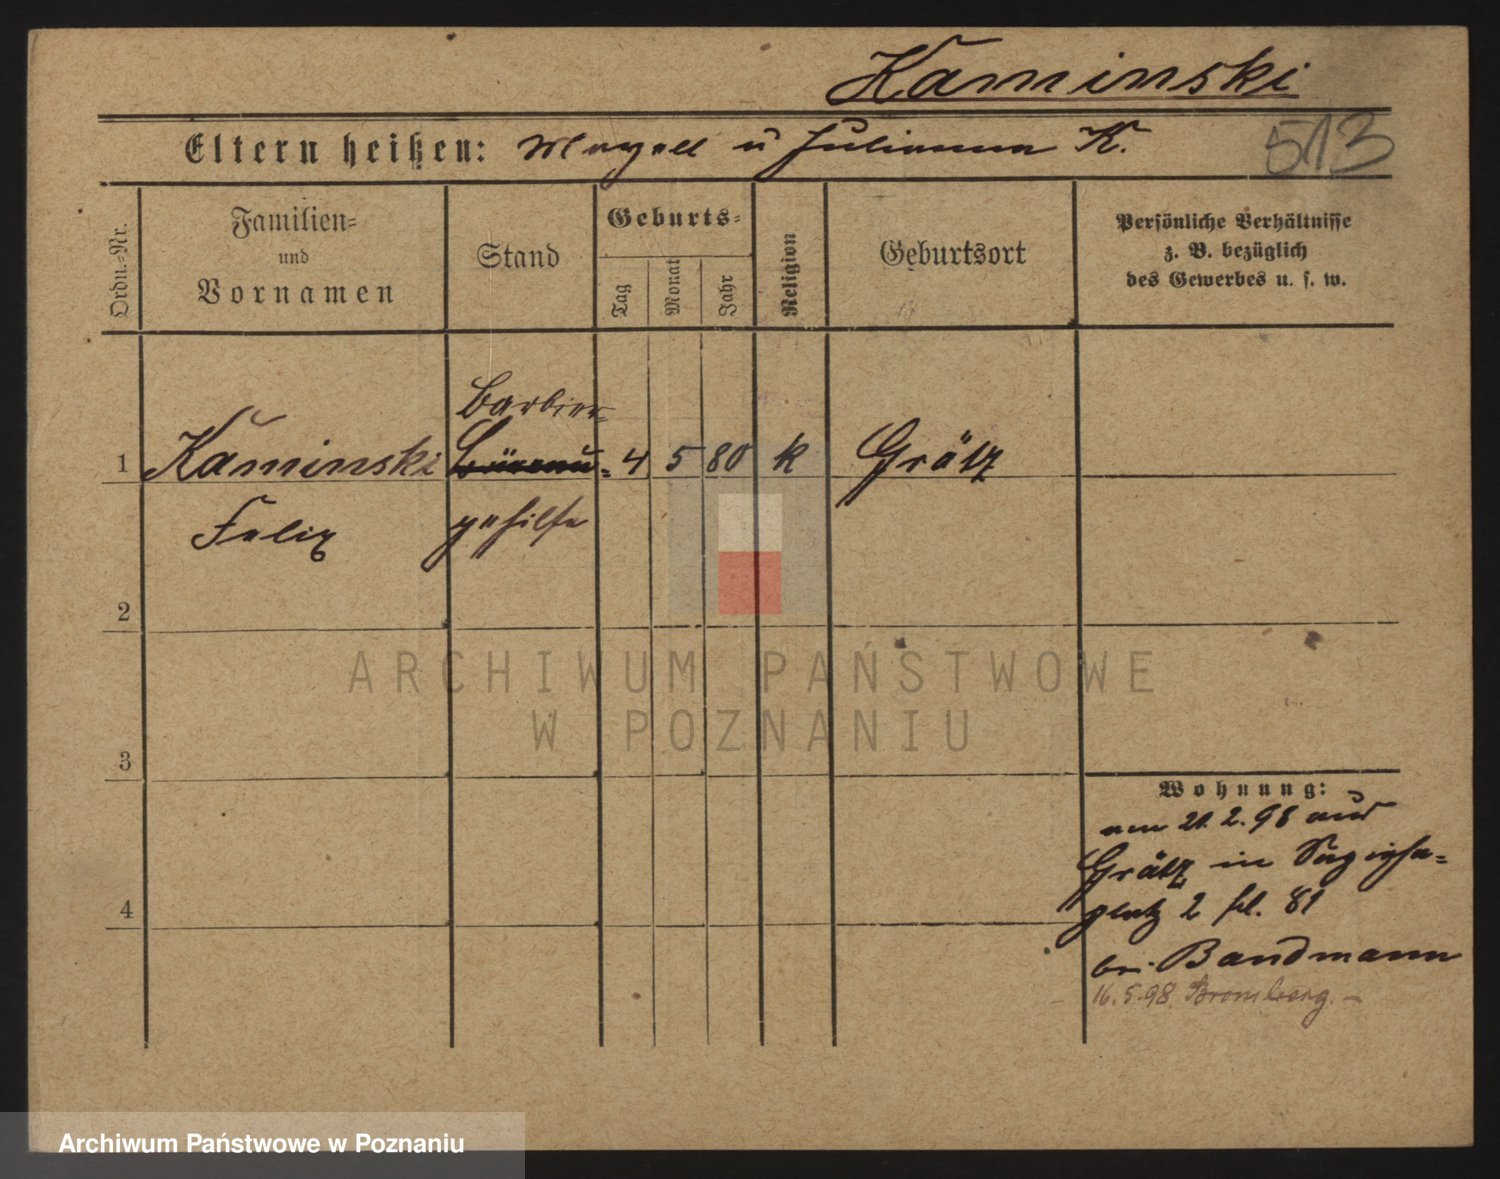 Kaminski
Eltern heißen: u Julianna K.
513
Ordn.-Nr.
Familien-
und
Vornamen
Stand
Geburts-
Tag
Monat
Jahr
Religion
Geburtsort
Persönliche Verhältnisse
z. B. bezüglich
des Gewerbes u. s. w.
Barbier-
1 Kaminski 4 5 80 k Grätz
Felix gehilfe
2
ARCHIWUM PAŃSTWOWE
W POZNANIU
3
Wohnung:
am 21.2.98 aus
Grätz in Sapieha-
4
platz 2 fl. 81
bei Bandmann
16.5.98. Bromberg.-
Archiwum Państwowe w Poznaniu